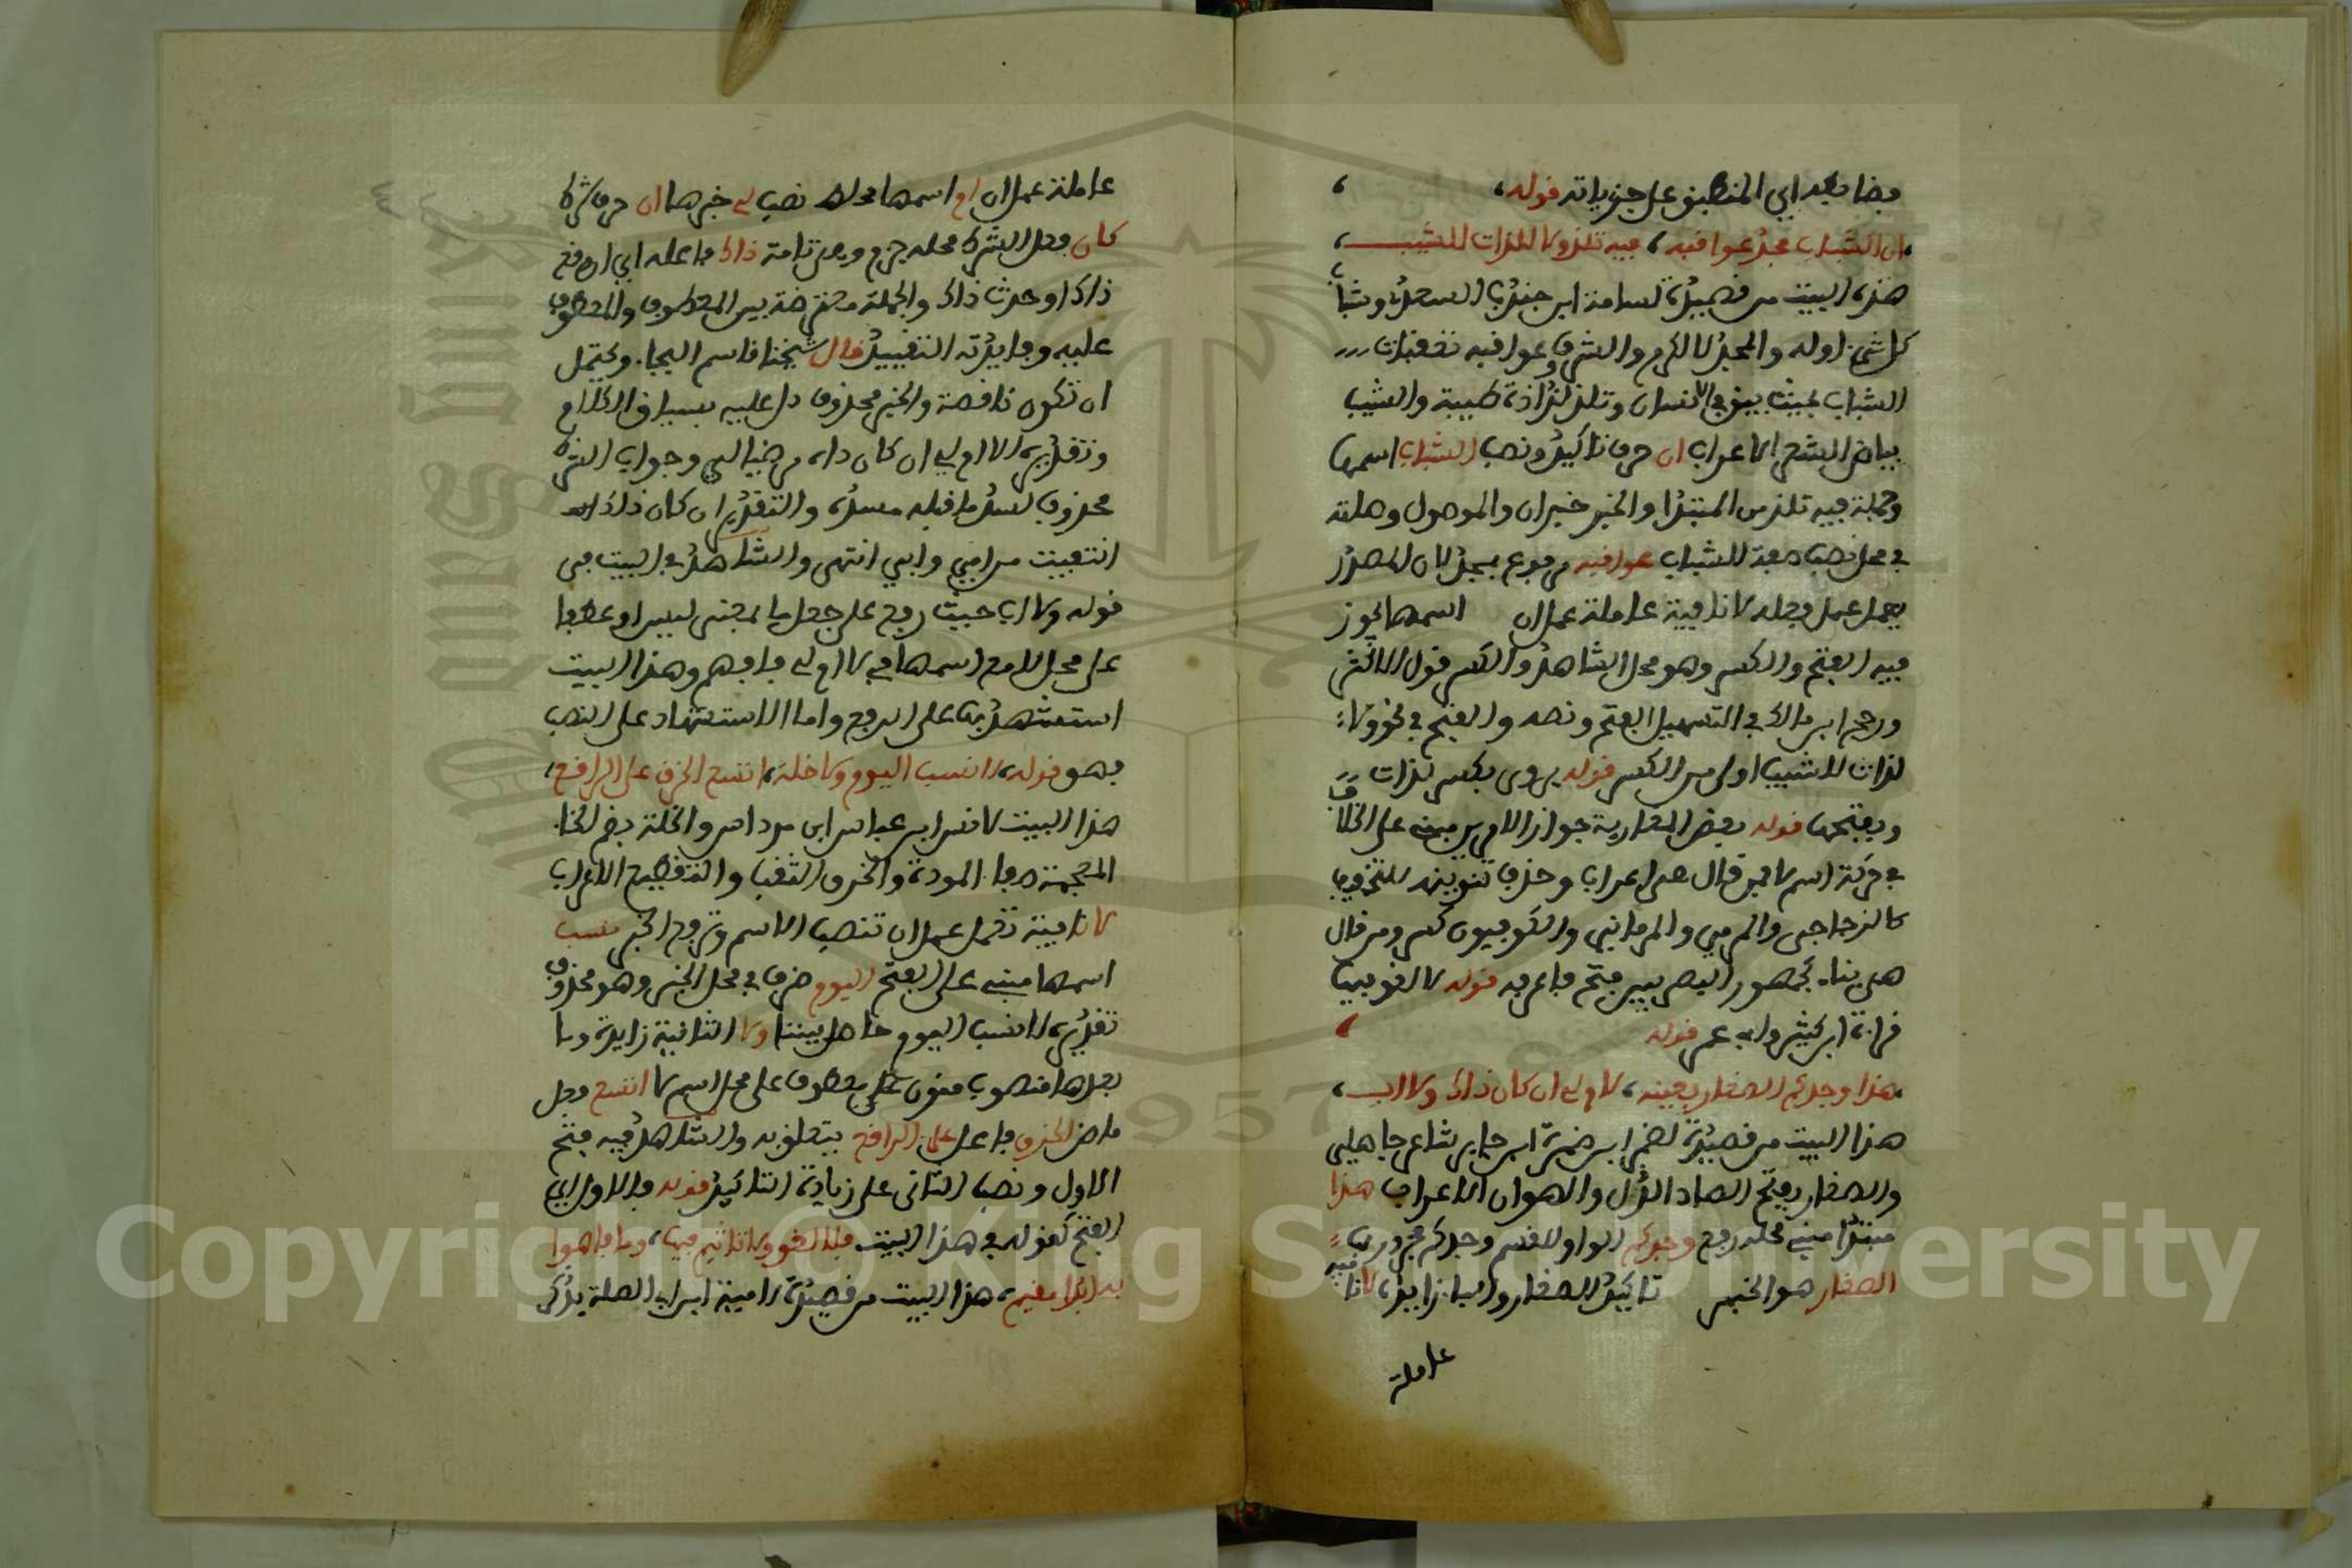 فضابطه اي المنطبق على جزياته قوله،
ان الشباب مجد عواقبه، فيه نلذ ولا لذات للشيب،
هذا البيت من قصيدة لسلامة ابن جندل السعدي وشباب
كل شيء اوله والمجد الكرم والشرف وعواقبه تعقبات
الشباب بحيث يبقى الانسان وتلذ لذاذة طيبة والشيب
بياض الشعر الاعراب ان حرف تاكيد ونصب الشباب اسمها
وجملة فيه تلذ من المبتدا والخبر خبر ان والموصول وصلته
في محل نصب صفة الشباب عواقبه مرفوع بمجد لان المصدر
يعمل عمل فعله لا نافية عاملة عمل ان اسمها يجوز
فيه الفتح والكسر وهو محل الشاهد والكسر قول الاكثر
ورجح ابن مالك في التسهيل الفتح ونصه والفتح في نحو ولا
لذات للشيب اولى من الكسر قوله يروى بكسر لذات
وبفتحها قوله بعض المغاربة جواز الامرين مبني على الخلاف
في حركة اسم لا فمن قال هي اعراب وحذف تنوينه للتخفيف
كالزجاجي والجرمي والرماني والكوفيون كسر ومن قال
هي بناء كجمهور البصريين فتح فاعرفه قوله لا لغو فيها
قراءة ابن كثير وابي عمر قوله
هذا وجدكم الصغار بعينه، لا ام لي ان كان ذاك ولا اب،
هذا البيت من قصيدة لضمر ابن ضمرة ابن جابر شاعر جاهلي
والصغار بفتح الصاد الذل والهوان الاعراب هذا
مبتدا مبني محله رفع وجدكم الواو للقسم وجدكم مجرور بها
الصغار هو الخبر تاكيد الصغار والباء زايدة لا نافية
عاملة
عاملة عمل ان ام اسمها محله نصب لي خبرها ان حرف شرط
كان فعل الشرط محله جزم وهي تامة ذاك فاعله اي ان وقع
ذاك او حدث ذاك والجملة معترضة بين المعطوف والمعطوف
عليه وفايدته التقييد قال شيخنا قاسم البجا. ويحتمل
ان تكون ناقصة والخبر محذوف دل عليه بسياق الكلام
وتقديره لا ام لي ان كان ذاك مرضيا لي وجواب الشرط
محذوف لسد ما قبله مسده والتقدير ان كان ذلك
انتفيت من امي وابي انتهى والشاهد في البيت في
قوله ولا اب حيث رفع على جعل لا بمعنى ليس او عطفا
على محل لا مع اسمها في لا ام لي فافهم وهذا البيت
استشهد به على الرفع واما الاستشهاد على النصب
فهو قوله، لا نسب اليوم ولا خلة، اتسع الخرق على الراقع،
هذا البيت لانس ابن عباس ابن مرداس والخلة بضم الخاء
المعجمة وفاء المودة والخرق الثقب والتقطيع الاعراب
لا نافية تعمل عمل ان تنصب الاسم وترفع الخبر نسب
اسمها مبني على الفتح اليوم ظرف في محل الخبر وهو محذوف
تقديره لا نسب اليوم حاصل بيننا ولا الثانية زايدة وما
بعدها منصوب منون على معطوف على محل اسم لا اتسع فعل
ماض الخرق فاعل على الراقع يتعلق به والشاهد فيه فتح
الاول ونصب الثاني على زيادة التاكيد قوله فالاول اي
الفتح كقوله في هذا البيت فلا لغو ولا تاثيم فيها، وما فاهوا
به ابدا مقيم، هذا البيت من قصيدة لامية ابن ابي الصلة يذكر